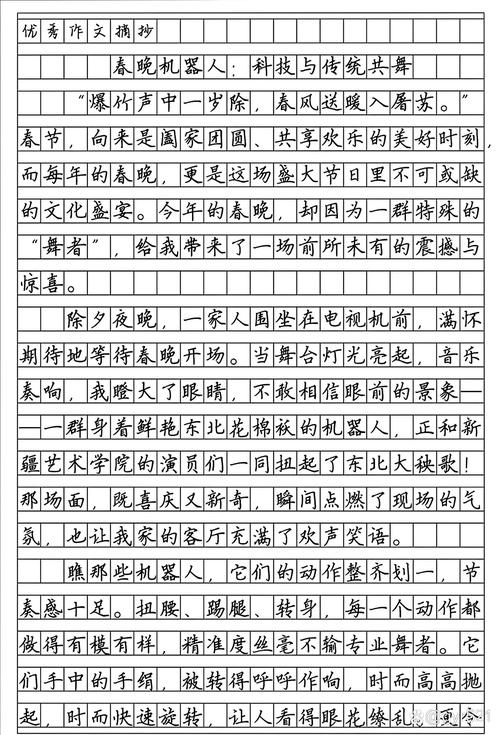 优秀作文摘抄
春晚机器人：科技与传统共舞
“爆竹声中一岁除，春风送暖入屠苏。”
春节，向来是阖家团圆、共享欢乐的美好时刻，
而每年的春晚，更是这场盛大节日里不可或缺
的文化盛宴。今年的春晚，却因为一群特殊的
“舞者”，给我带来了一场前所未有的震撼与
惊喜。
除夕夜晚，一家人围坐在电视机前，满怀
期待地等待春晚开场。当舞台灯光亮起，音乐
奏响，我瞪大了眼睛，不敢相信眼前的景象—
—一群身着鲜艳东北花棉袄的机器人，正和新
疆艺术学院的演员们一同扭起了东北大秧歌！
那场面，既喜庆又新奇，瞬间点燃了现场的气
氛，也让我家的客厅充满了欢声笑语。
瞧那些机器人，它们的动作整齐划一，节
奏感十足。扭腰、踢腿、转身，每一个动作都
做得有模有样，精准度丝毫不输专业舞者。它
们手中的手绢，被转得呼呼作响，时而高高抛
起，时而快速旋转，让人看得眼花缭乱。更令